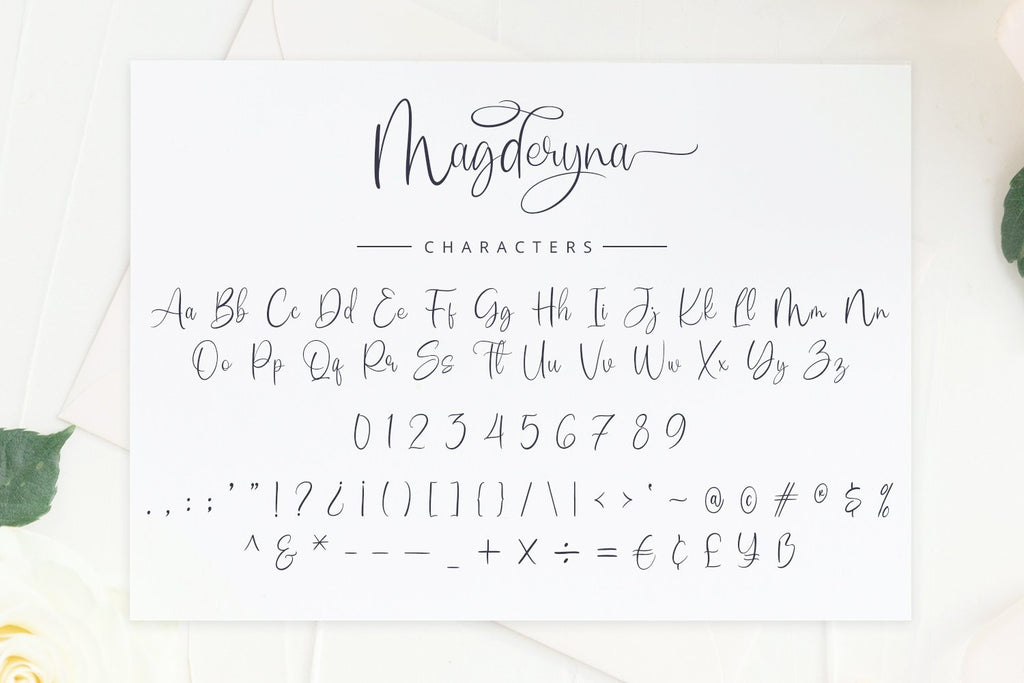 Magderyna
CHARACTERS
Aa Bb Cc Dd Ee Ff Gg Hh Ii Jj Kk Ll Mm Nn
Oo Pp Qq Rr Ss Tt Uu Vv Ww Xx Yy Zz
0 1 2 3 4 5 6 7 8 9
. , : ; ' " ! ? ¿ ¡ ( ) [ ] { } / \ | < > ‘ ~ @ © # ® $ %
^ & * - – — _ + × ÷ = € ¢ £ ¥ ß